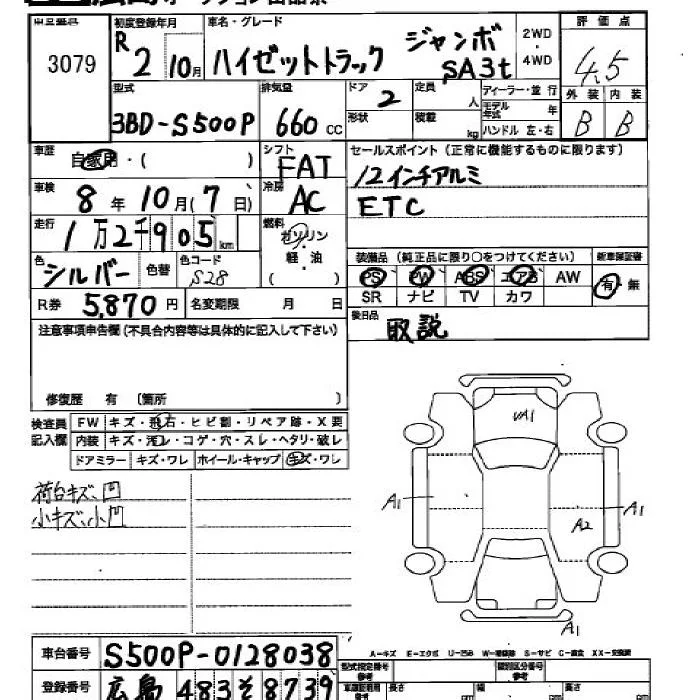 オークション出品票
3079
初度登録年月
R 2 10月
車名・グレード
ハイゼットトラック ジャンボ SA3t
2WD
4WD
評価点
4.5
外装 内装
B B
型式
3BD-S500P
排気量
660 cc
ドア 2
形状
定員 人
積載 kg
ディーラー・並行
モデル年式 年
ハンドル 左・右
車歴 自家用・( )
シフト FAT
セールスポイント (正常に機能するものに限ります)
12インチアルミ
ETC
車検 8年10月(7日)
冷房 AC
走行 1万2千905km
燃料 ガソリン
軽・油
( )
色 シルバー 色替
色コード S28
装備品 (純正品に限り○をつけてください)
新車保証書
PS PW ABS エアB AW
有・無
SR ナビ TV カワ
R券 5,870円 名変期限 月 日
後日品 取説
注意事項申告欄(不具合内容等は具体的に記入して下さい)
修復歴 有 〔箇所 〕
検査員記入欄
FW キズ・飛石・ヒビ割・リペア跡・X要
内装 キズ・汚レ・コゲ・穴・スレ・ヘタリ・破レ
ドアミラー キズ・ワレ ホイール・キャップ キズ・ワレ
荷台キズ、凹
小キズ、小凹
A1
A1
A2
A1
車台番号 S500P-0128038
登録番号 広島 483そ8739
A-キズ E-エクボ S-サビ
型式指定番号
類別区分番号
長さ 幅 高さ